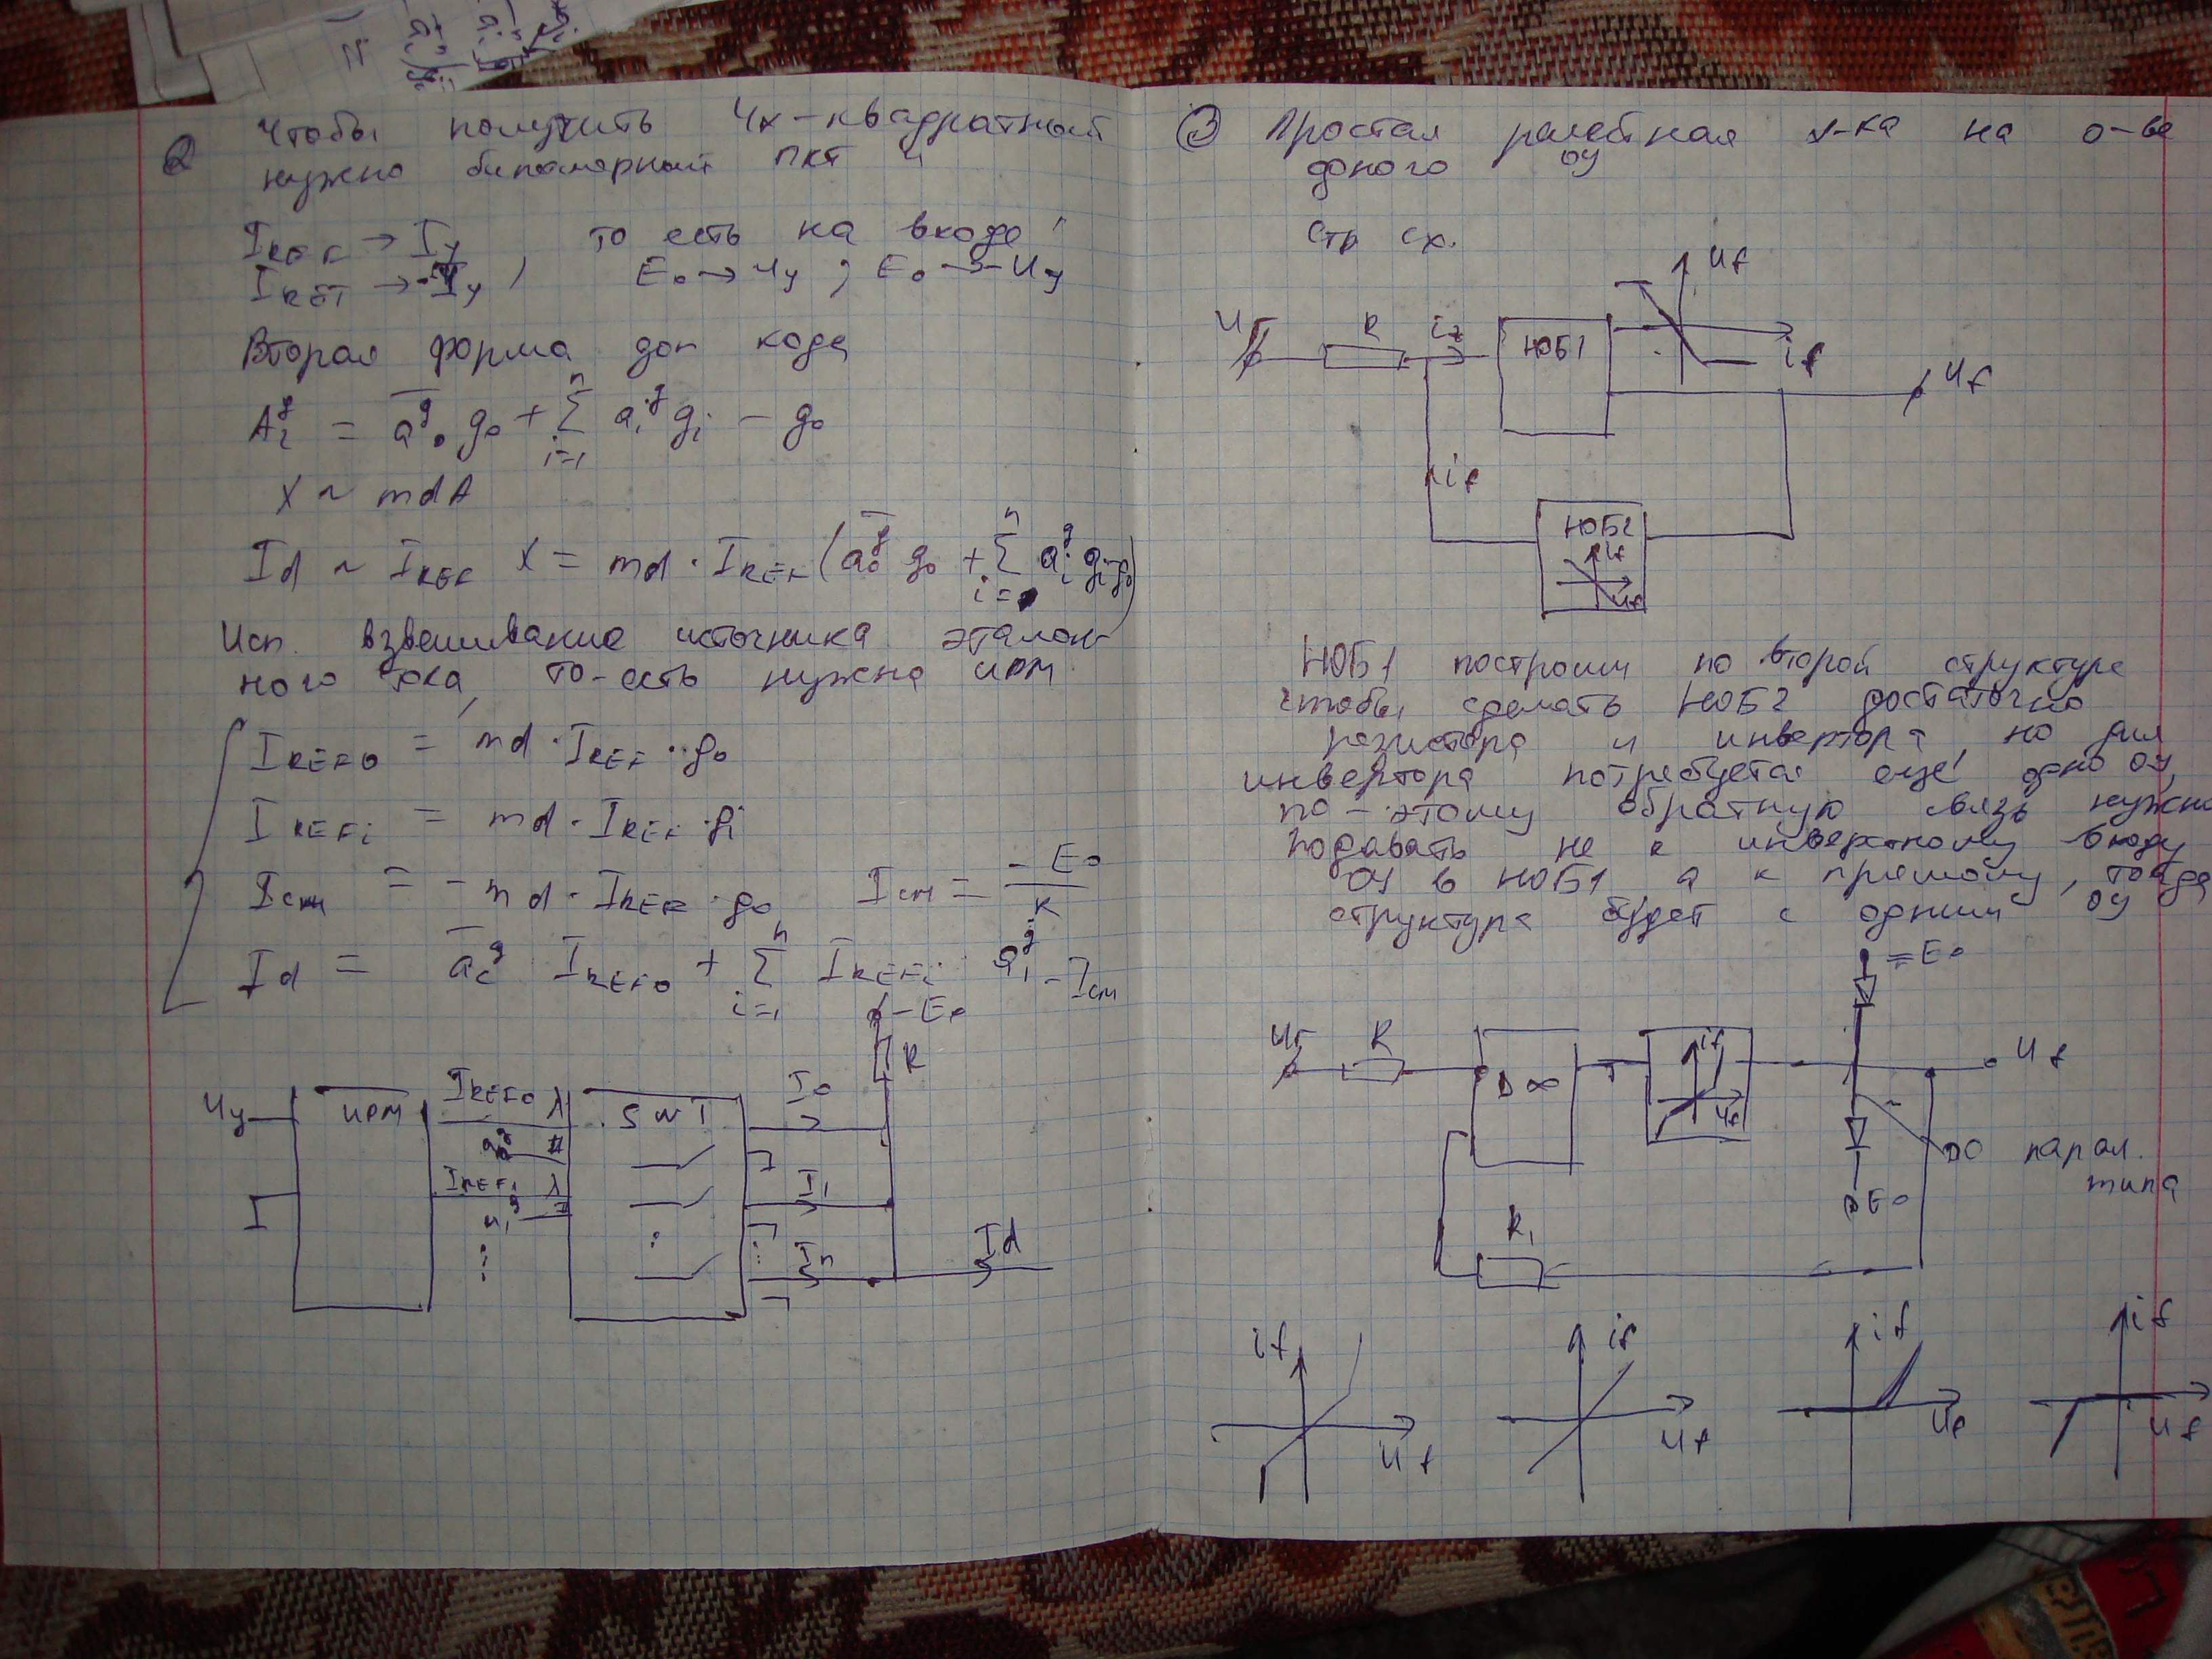 2 Чтобы получить 4х-квадратный
нужно биполярный ПКТ и
IREF → Iу , то есть на входе
IREF → -Iу E0 → Uу ; E0 → -Uу
Вторая форма доп кода
A₂^g = a̅₀^g g₀ + Σ_{i=1}^{n} aᵢ^g gᵢ - g₀
X ~ mdA
Id ~ IREF X = md · IREF (a̅₀^g g₀ + Σ aᵢ^g gᵢ - g₀)
Исп. взвешивание источника эталон-
ного тока, то-есть нужна ИРМ
IREF0 = md · IREF · g₀
IREFi = md · IREF · gᵢ
Iсм = -md · IREF · g₀ Iсм = -E0/R
Id = a̅₀^g IREF0 + Σ_{i=1}^{n} IREFi · aᵢ^g - Iсм
-E0
R
Uу ИРМ IREF0 λ SWT I0
IREF1 λ I1
I In Id
3 Простая релейная х-ка на о-ве
одного ОУ
Стр сх.
Uf
Uг R iг НОБ1 if
Uf
if
НОБ2
if
Uf
НОБ1 построим по второй структуре
чтобы сделать НОБ2 достаточно
резистора и инвертора, но для
инвертора потребуется еще одно ОУ,
по-этому обратную связь нужно
подавать не к инверсному входу
ОУ в НОБ1, а к прямому, тогда
структура будет с одним ОУ
E0
Uг R D ∞ if Uf
Uf
ДО парал.
типа
E0
R1
if if if if
Uf Uf Uf Uf